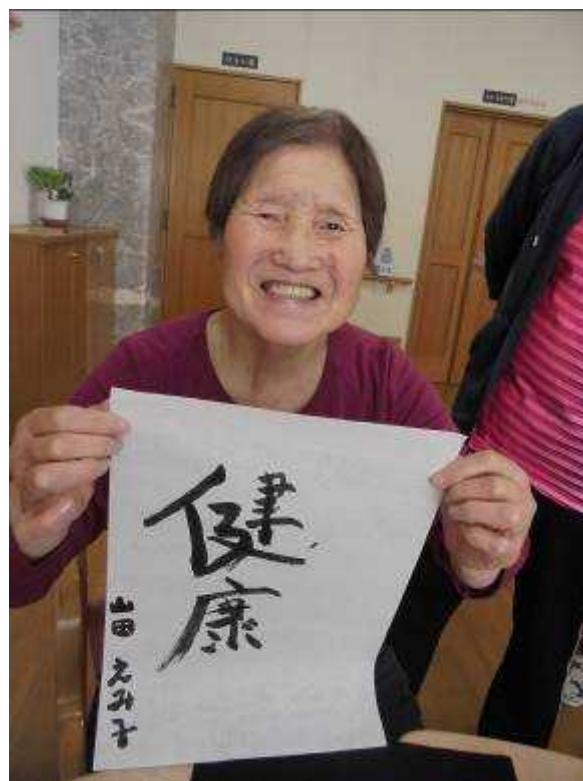 健康
山田 えみ子